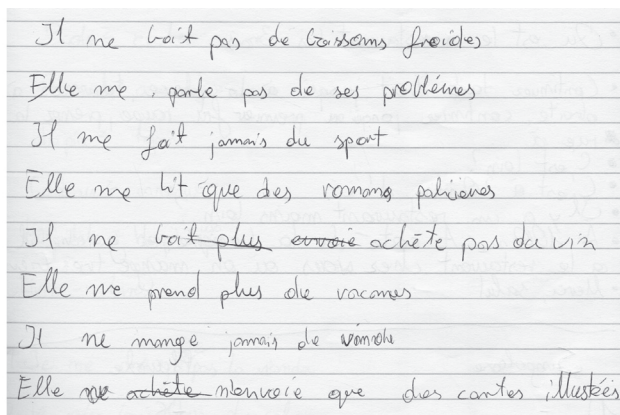 Il ne boit pas de boissons froides
Elle ne parle pas de ses problémes
Il ne fait jamais du sport
Elle ne lit que des romans policiers
Il ne boit plus envoie achète pas du vin
Elle ne prend plus de vacances
Il ne mange jamais de viande
Elle ne achète n'envoie que des cartes illustrées